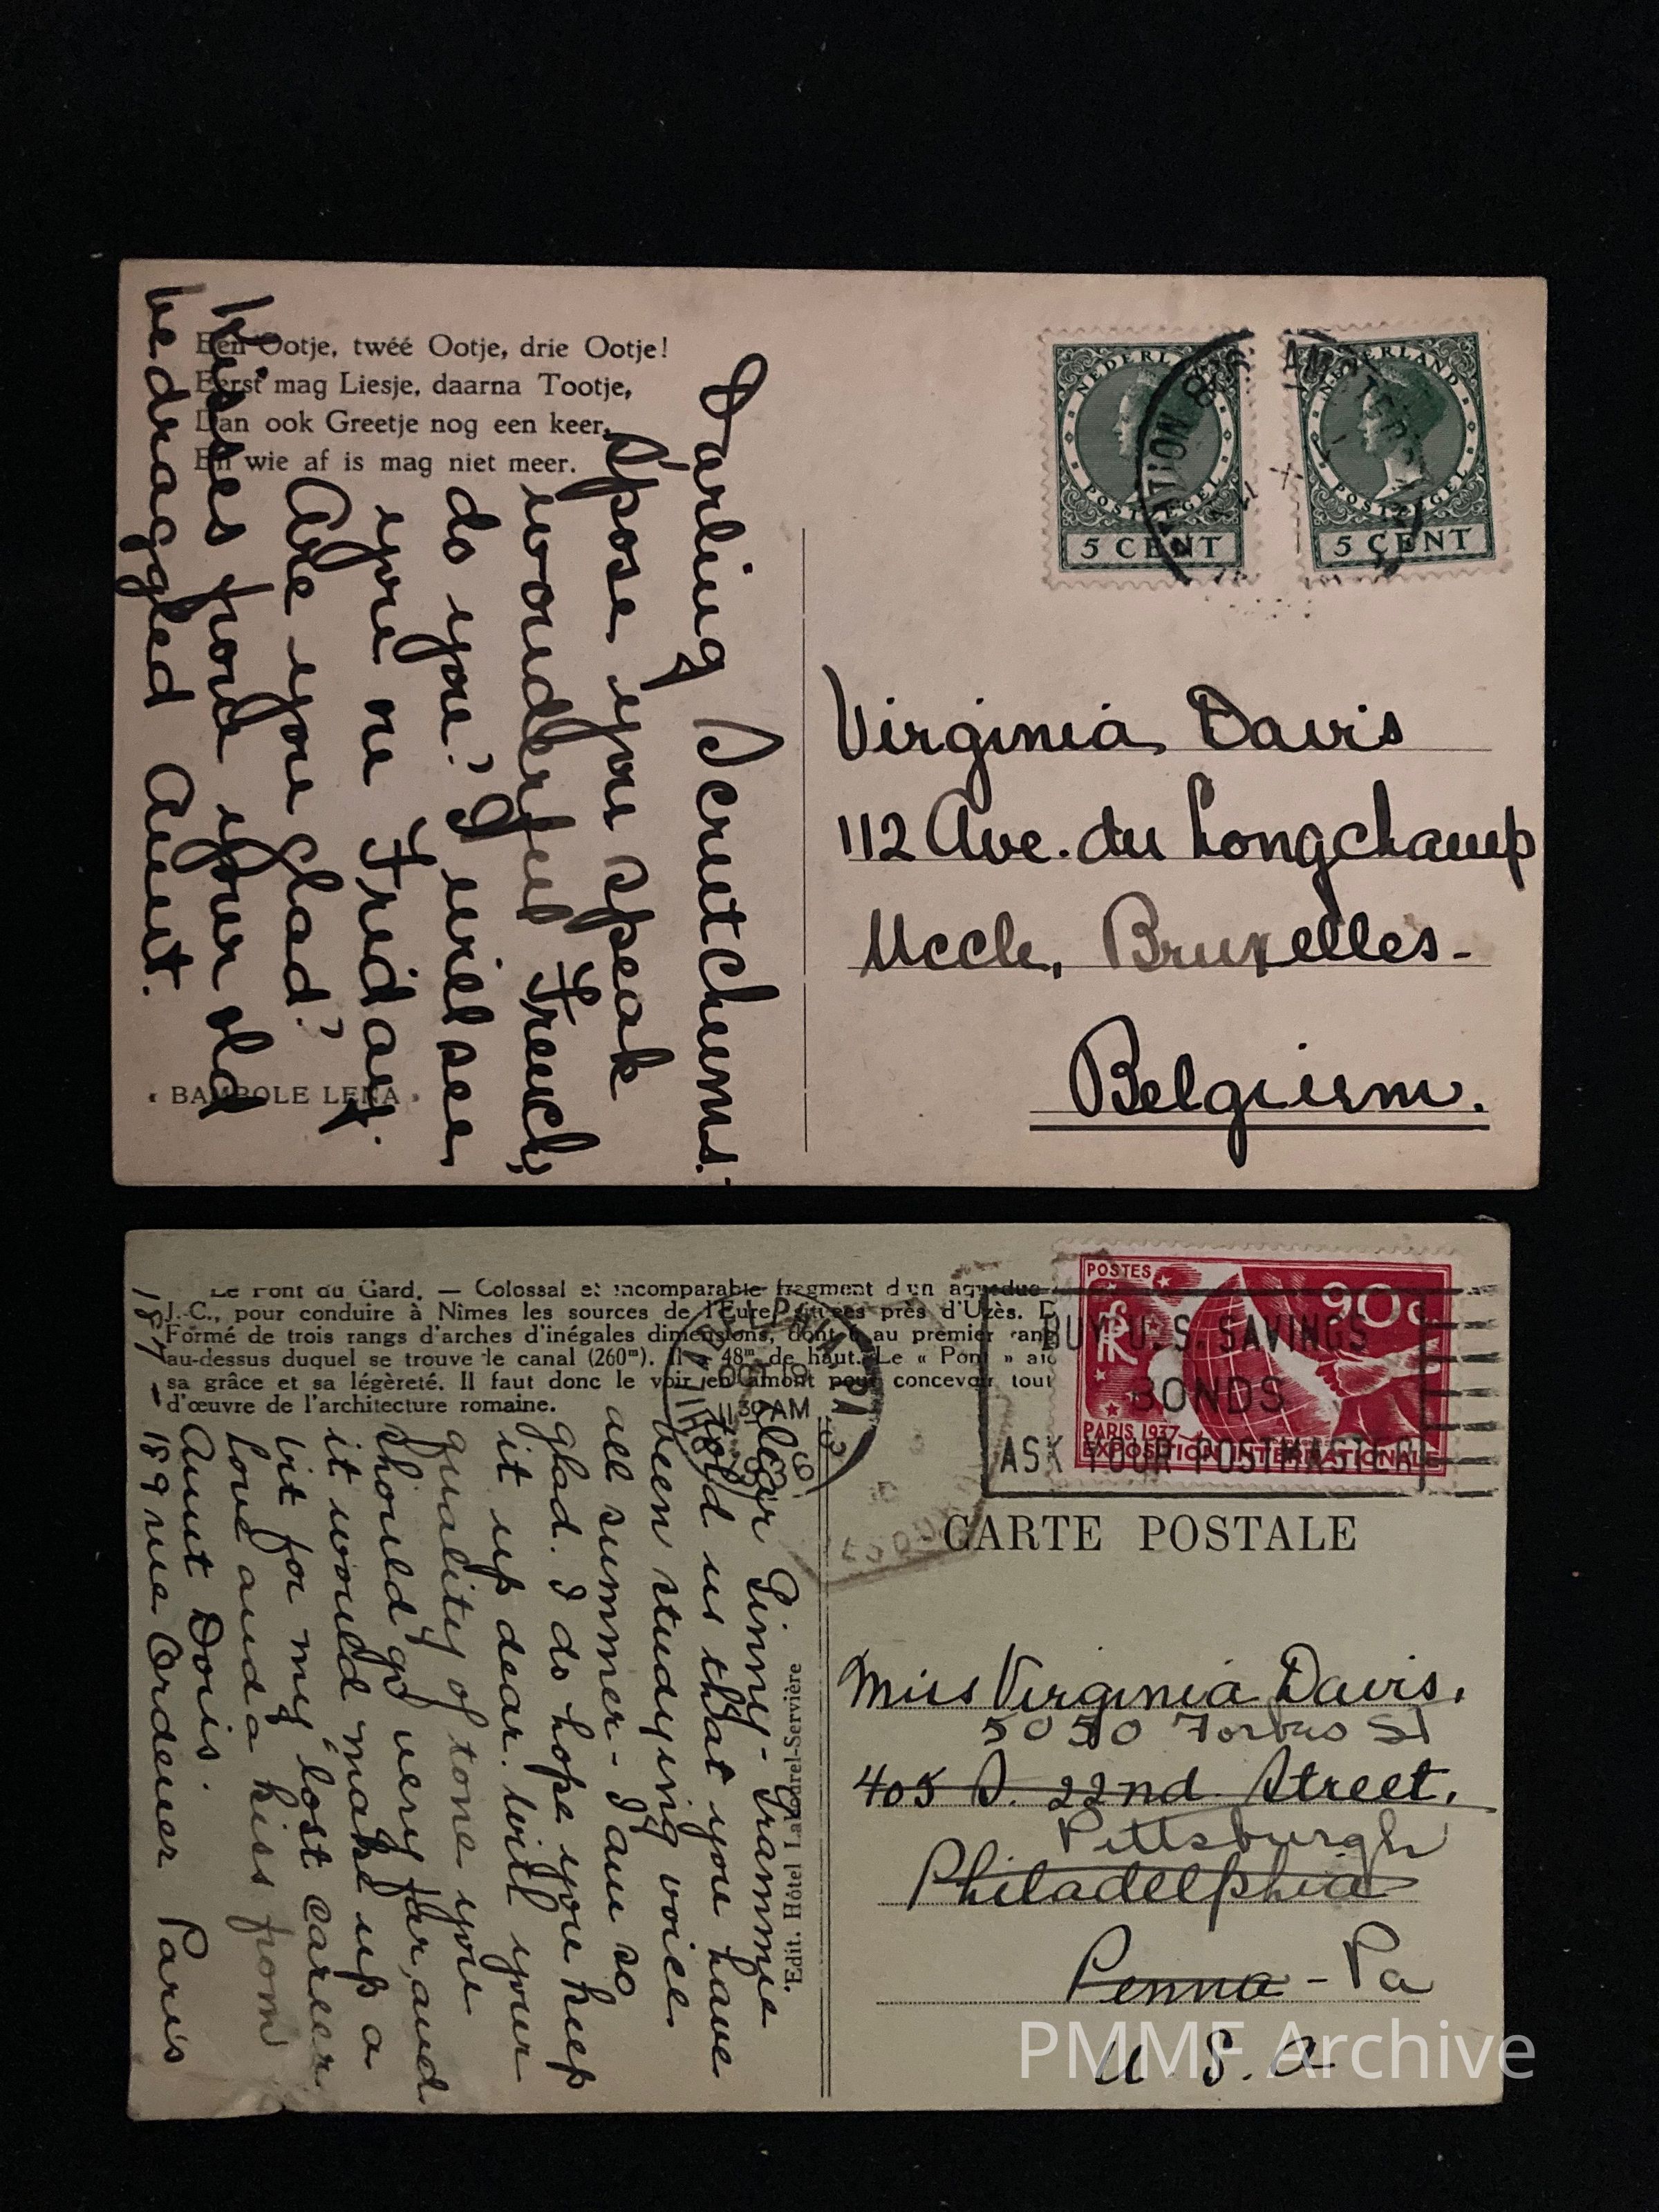 Een Ootje, twéé Ootje, drie Ootje!
Eerst mag Liesje, daarna Tootje,
Dan ook Greetje nog een keer,
En wie af is mag niet meer.
Darling Scrutchums.
S'pose you speak
wonderful French,
do you? I will see
you on Friday.
Are you glad?
Kisses from your old
bedraggled Aunt.
« BAMBOLE LENA »
NEDERLAND
POSTZEGEL
5 CENT
NEDERLAND
POSTZEGEL
5 CENT
STATION
Virginia Davis
112 Ave. du Longchamp
Uccle, Bruxelles-
Belgium.
Le Pont du Gard. — Colossal et incomparable fragment d'un aqueduc
J.-C., pour conduire à Nîmes les sources de l'Eure, situées près d'Uzès.
Formé de trois rangs d'arches d'inégales dimensions, dont 6 au premier rang
au-dessus duquel se trouve le canal (260m). Il a 48m de haut. Le « Pont »
sa grâce et sa légèreté. Il faut donc le voir en amont pour concevoir tout
d'œuvre de l'architecture romaine.
Dear Ginny- Grammie
told us that you have
been studying voice
all summer- I am so
glad. I do hope you keep
it up dear. With your
quality of tone you
should go very far, and
it would make up a
bit for my "lost career
Love and a kiss from
Aunt Doris.
189 rue Ordener Paris
187-
Edit. Hôtel Labourel-Servière
PHILADELPHIA, PA.
OCT
11 30 AM
POSTES
RF
90c
PARIS 1937
EXPOSITION INTERNATIONALE
BUY U. S. SAVINGS
BONDS
ASK YOUR POSTMASTER
CARTE POSTALE
Miss Virginia Davis,
5050 Forbes St
405 S. 22nd Street,
Pittsburgh
Philadelphia
Penna - Pa
U. S. A
PMMF Archive